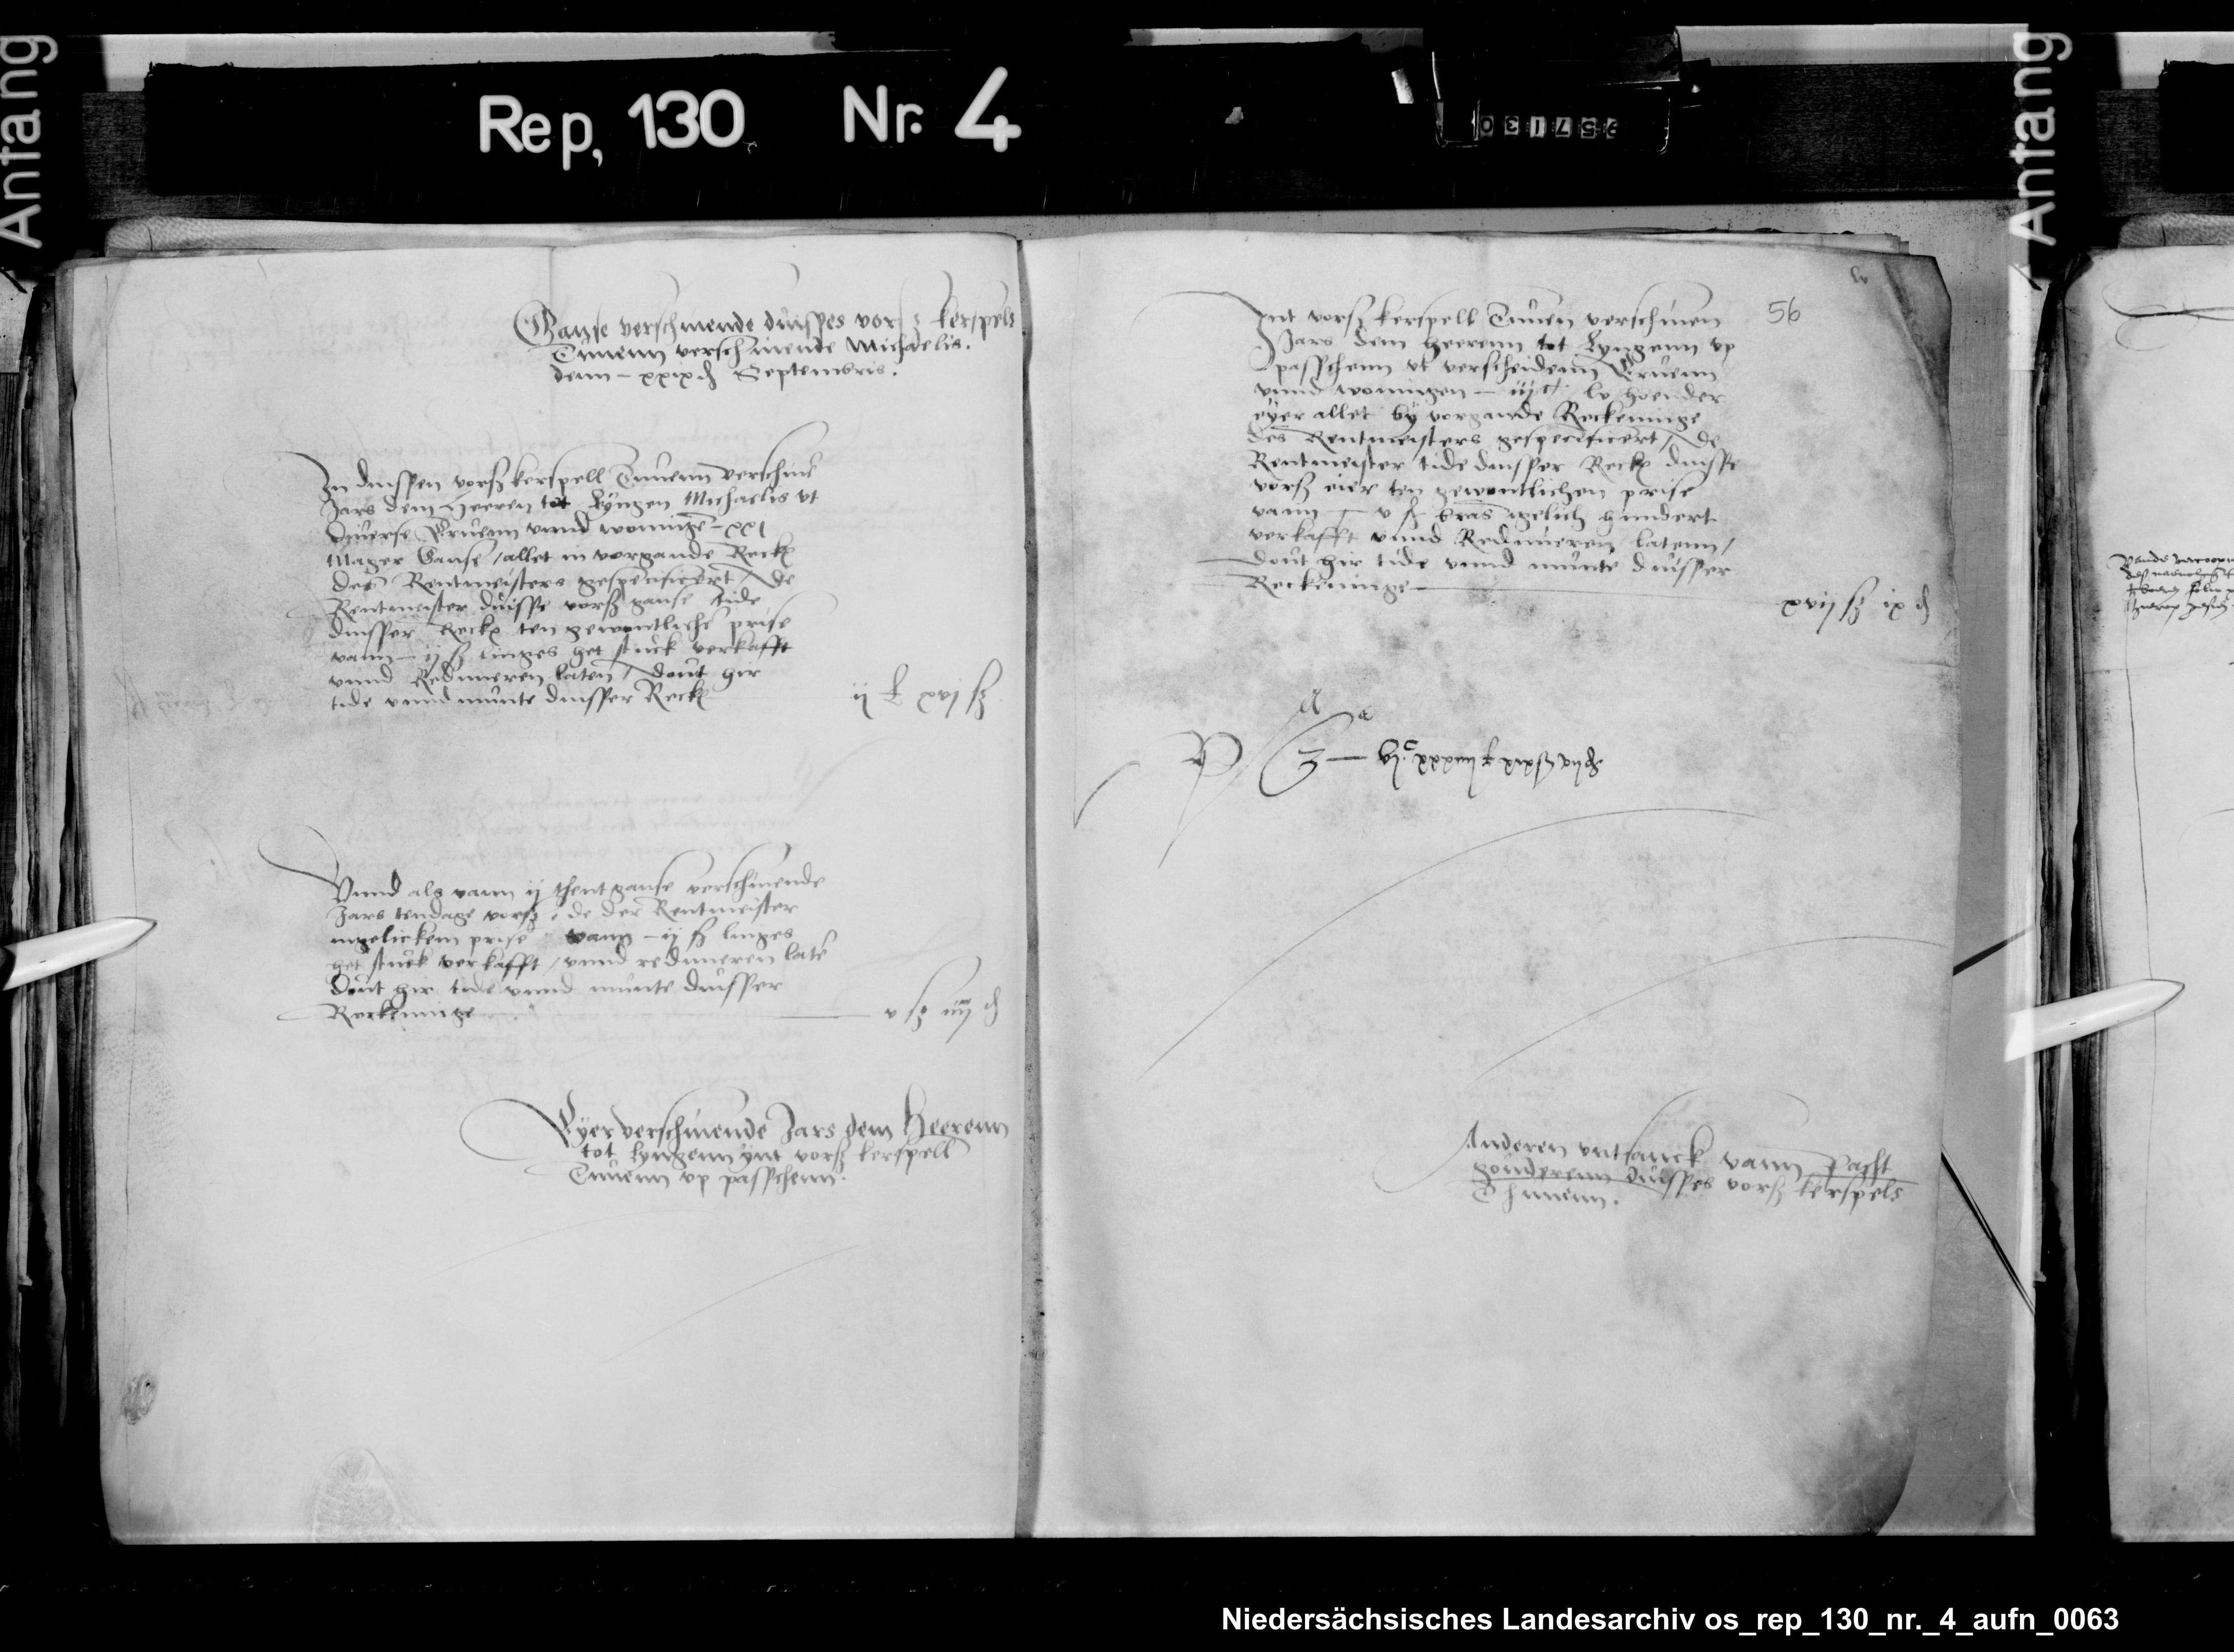 Anfang
Rep. 130 Nr. 4
Anfang
Ganse verschinende duisses vorß kerspels
Tuuenn verschinende Michaelis.
denn – xxix d Septembris.
In dussen vorß kerspell Tuuenn verschins
Jars dem Heeren tot Lyngen Michaelis vt
diuerse Eruenn vnnd woninge – xxj
Mager Ganse / allet in vorgande Reck
des Rentmeisters gespecificert / De
Rentmeister duisse vorß ganse tide
duisser Reck ten gewontliche prise
vann – ij ß linges het stuck verkafft
vnnd Redimeren laten / dout hir
tide vnnd munte duisser Reck
ij xvj ß
Vnnd als vann ij thent ganse verschinende
Jars tendage vorß de der Rentmeister
ingelickem prise vann – ij ß linges
het stuck verkafft / vnnd redimeren late
dout hir tide vnnd munte duisser
Reckeninge
v ß iiij d
Eyer verschinende Jars dem Heerenn
tot Lyngenn ynt vorß kerspell
Tuuenn vp passchenn.
lv
56
Int vorß kerspell Tuuen verschinen
Jars dem Heerenn tot Lyngenn vp
passchenn vt verscheidenn Eruenn
vnnd woningen – iij c lv hoender
eyer allet by vorgande Reckeninge
des Rentmeisters gespecificert / De
Rentmeister tide duisser Reck duisse
vorß eier ten gewontlichen prise
vann – v ß bras igelich hundert
verkafft vnnd Redimeren latenn /
dout hir tide vnnd munte duisser
Reckeninge
xvij ß ix d
Anderen vntfanck vann Pacht
gonderenn duisses vorß kerspels
Thuuenn.
Niedersächsisches Landesarchiv os_rep_130_nr._4_aufn_0063